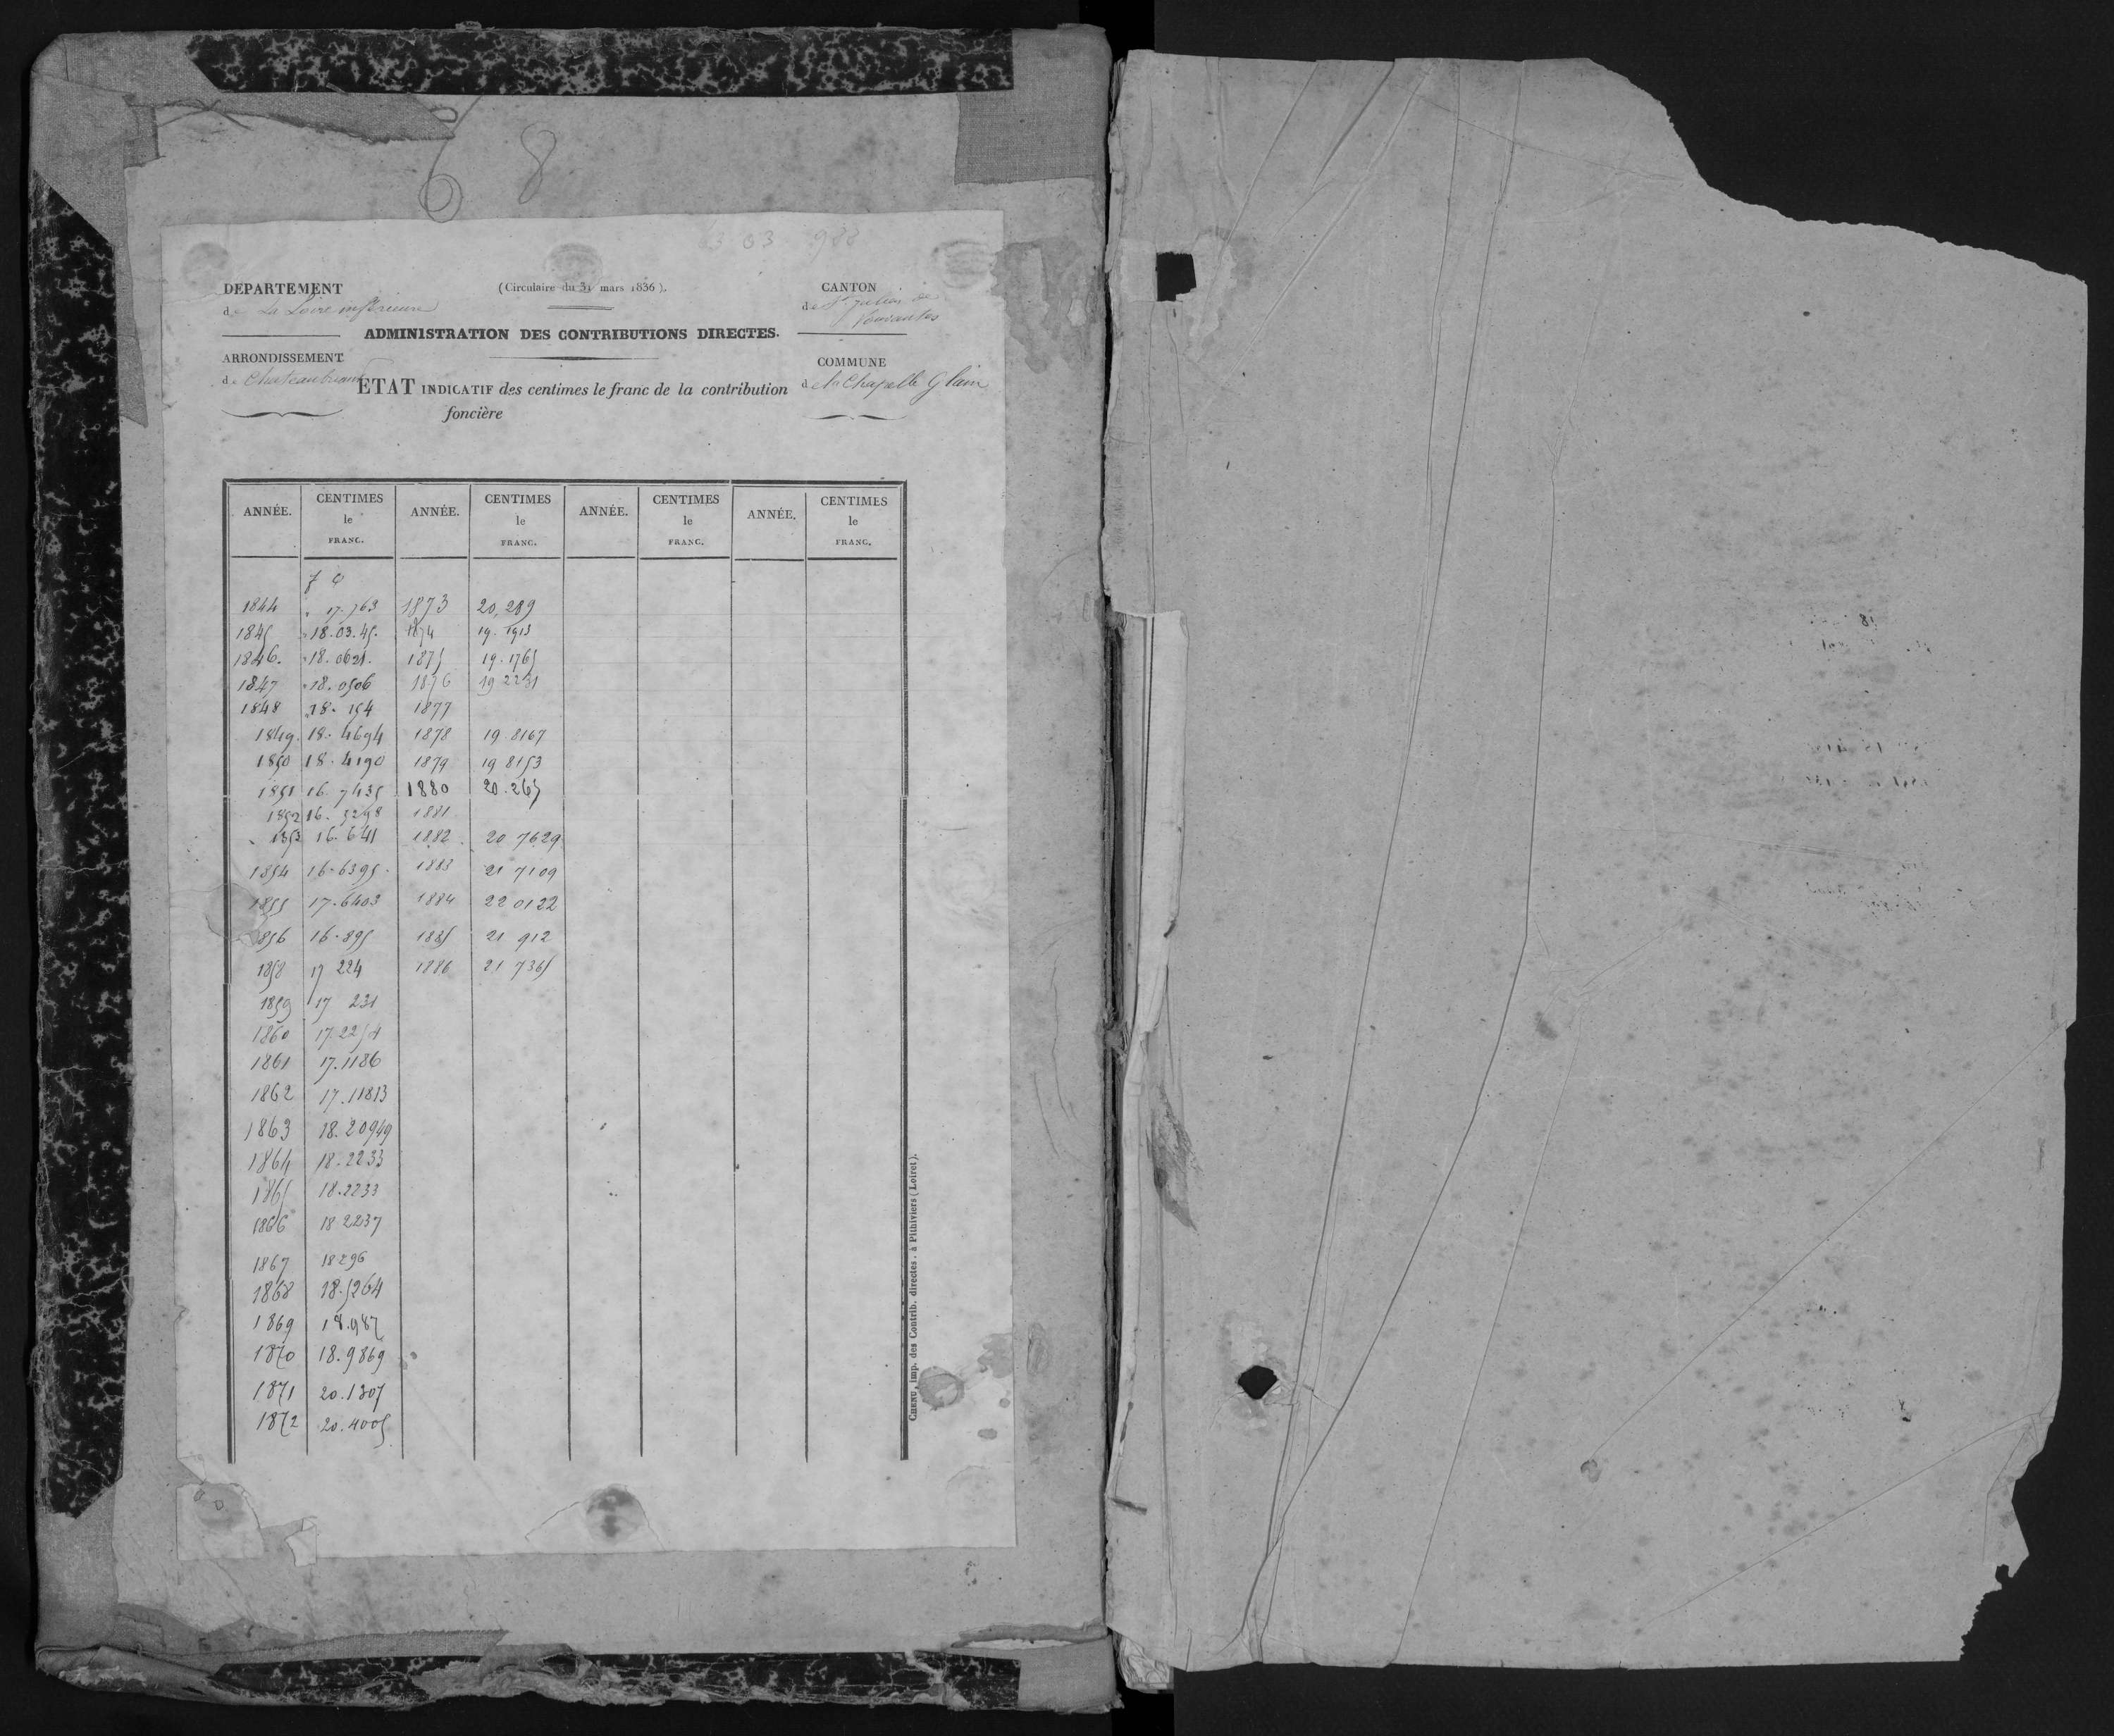 6 8
63 03 988
DEPARTEMENT
de La Loire inférieure
(Circulaire du 31 mars 1836).
CANTON
de St Julien de
Vouvantes
ADMINISTRATION DES CONTRIBUTIONS DIRECTES.
ARRONDISSEMENT
de Chateaubriant
COMMUNE
de la Chapelle Glain
ETAT INDICATIF des centimes le franc de la contribution
foncière
ANNÉE. CENTIMES le FRANC. ANNÉE. CENTIMES le FRANC. ANNÉE. CENTIMES le FRANC. ANNÉE. CENTIMES le FRANC.
f c
1844 " 17.763 1873 20,289
1845 "18.03.45. 1874 19.1913
1846. "18.0621. 1875 19.1765
1847 "18.0506 1876 19 2231
1848 "18.154 1877
1849. 18.4694 1878 19.8167
1850 18.4190 1879 19 8153
1851 16.7435 1880 20.265
1852 16.5298 1881
1853 16.641 1882 20 7629
1854 16.6395. 1883 21 7109
1855 17.6403 1884 22 0122
1856 16.895 1885 21 912
1858 17 224 1886 21 7365
1859 17 231
1860 17.2254
1861 17.1186
1862 17.11813
1863 18.20949
1864 18.2233
1865 18.2233
1866 18 2237
1867 18296
1868 18.5264
1869 18.987
1870 18.9869
1871 20.1307
1872 20.4005
CHENU, imp. des Contrib. directes. à Pithiviers (Loiret).